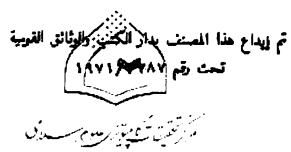 تم إيداع هذا المصنف بدار الكتب والوثائق القومية
تحت رقم ٧٨٧ / ١٩٧١
مرکز تحقیقات کامپیوتری علوم اسلامی